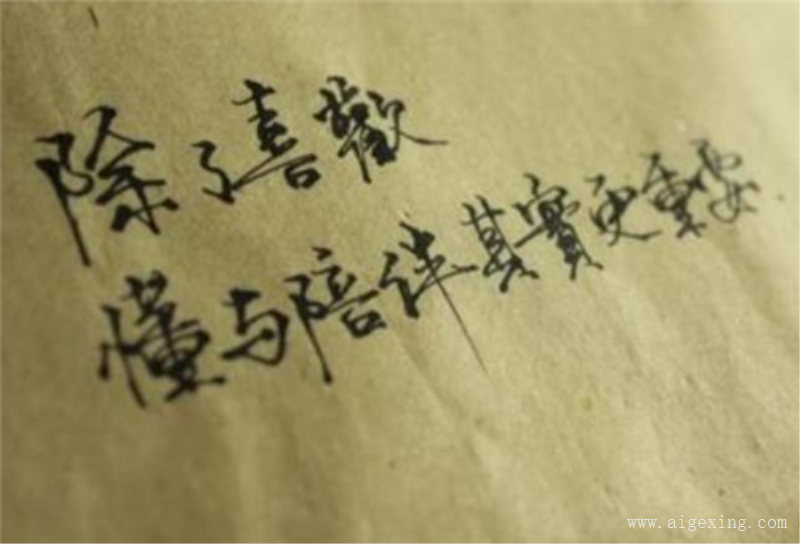 除了喜歡
懂与陪伴其實更重要
www.aigexing.com